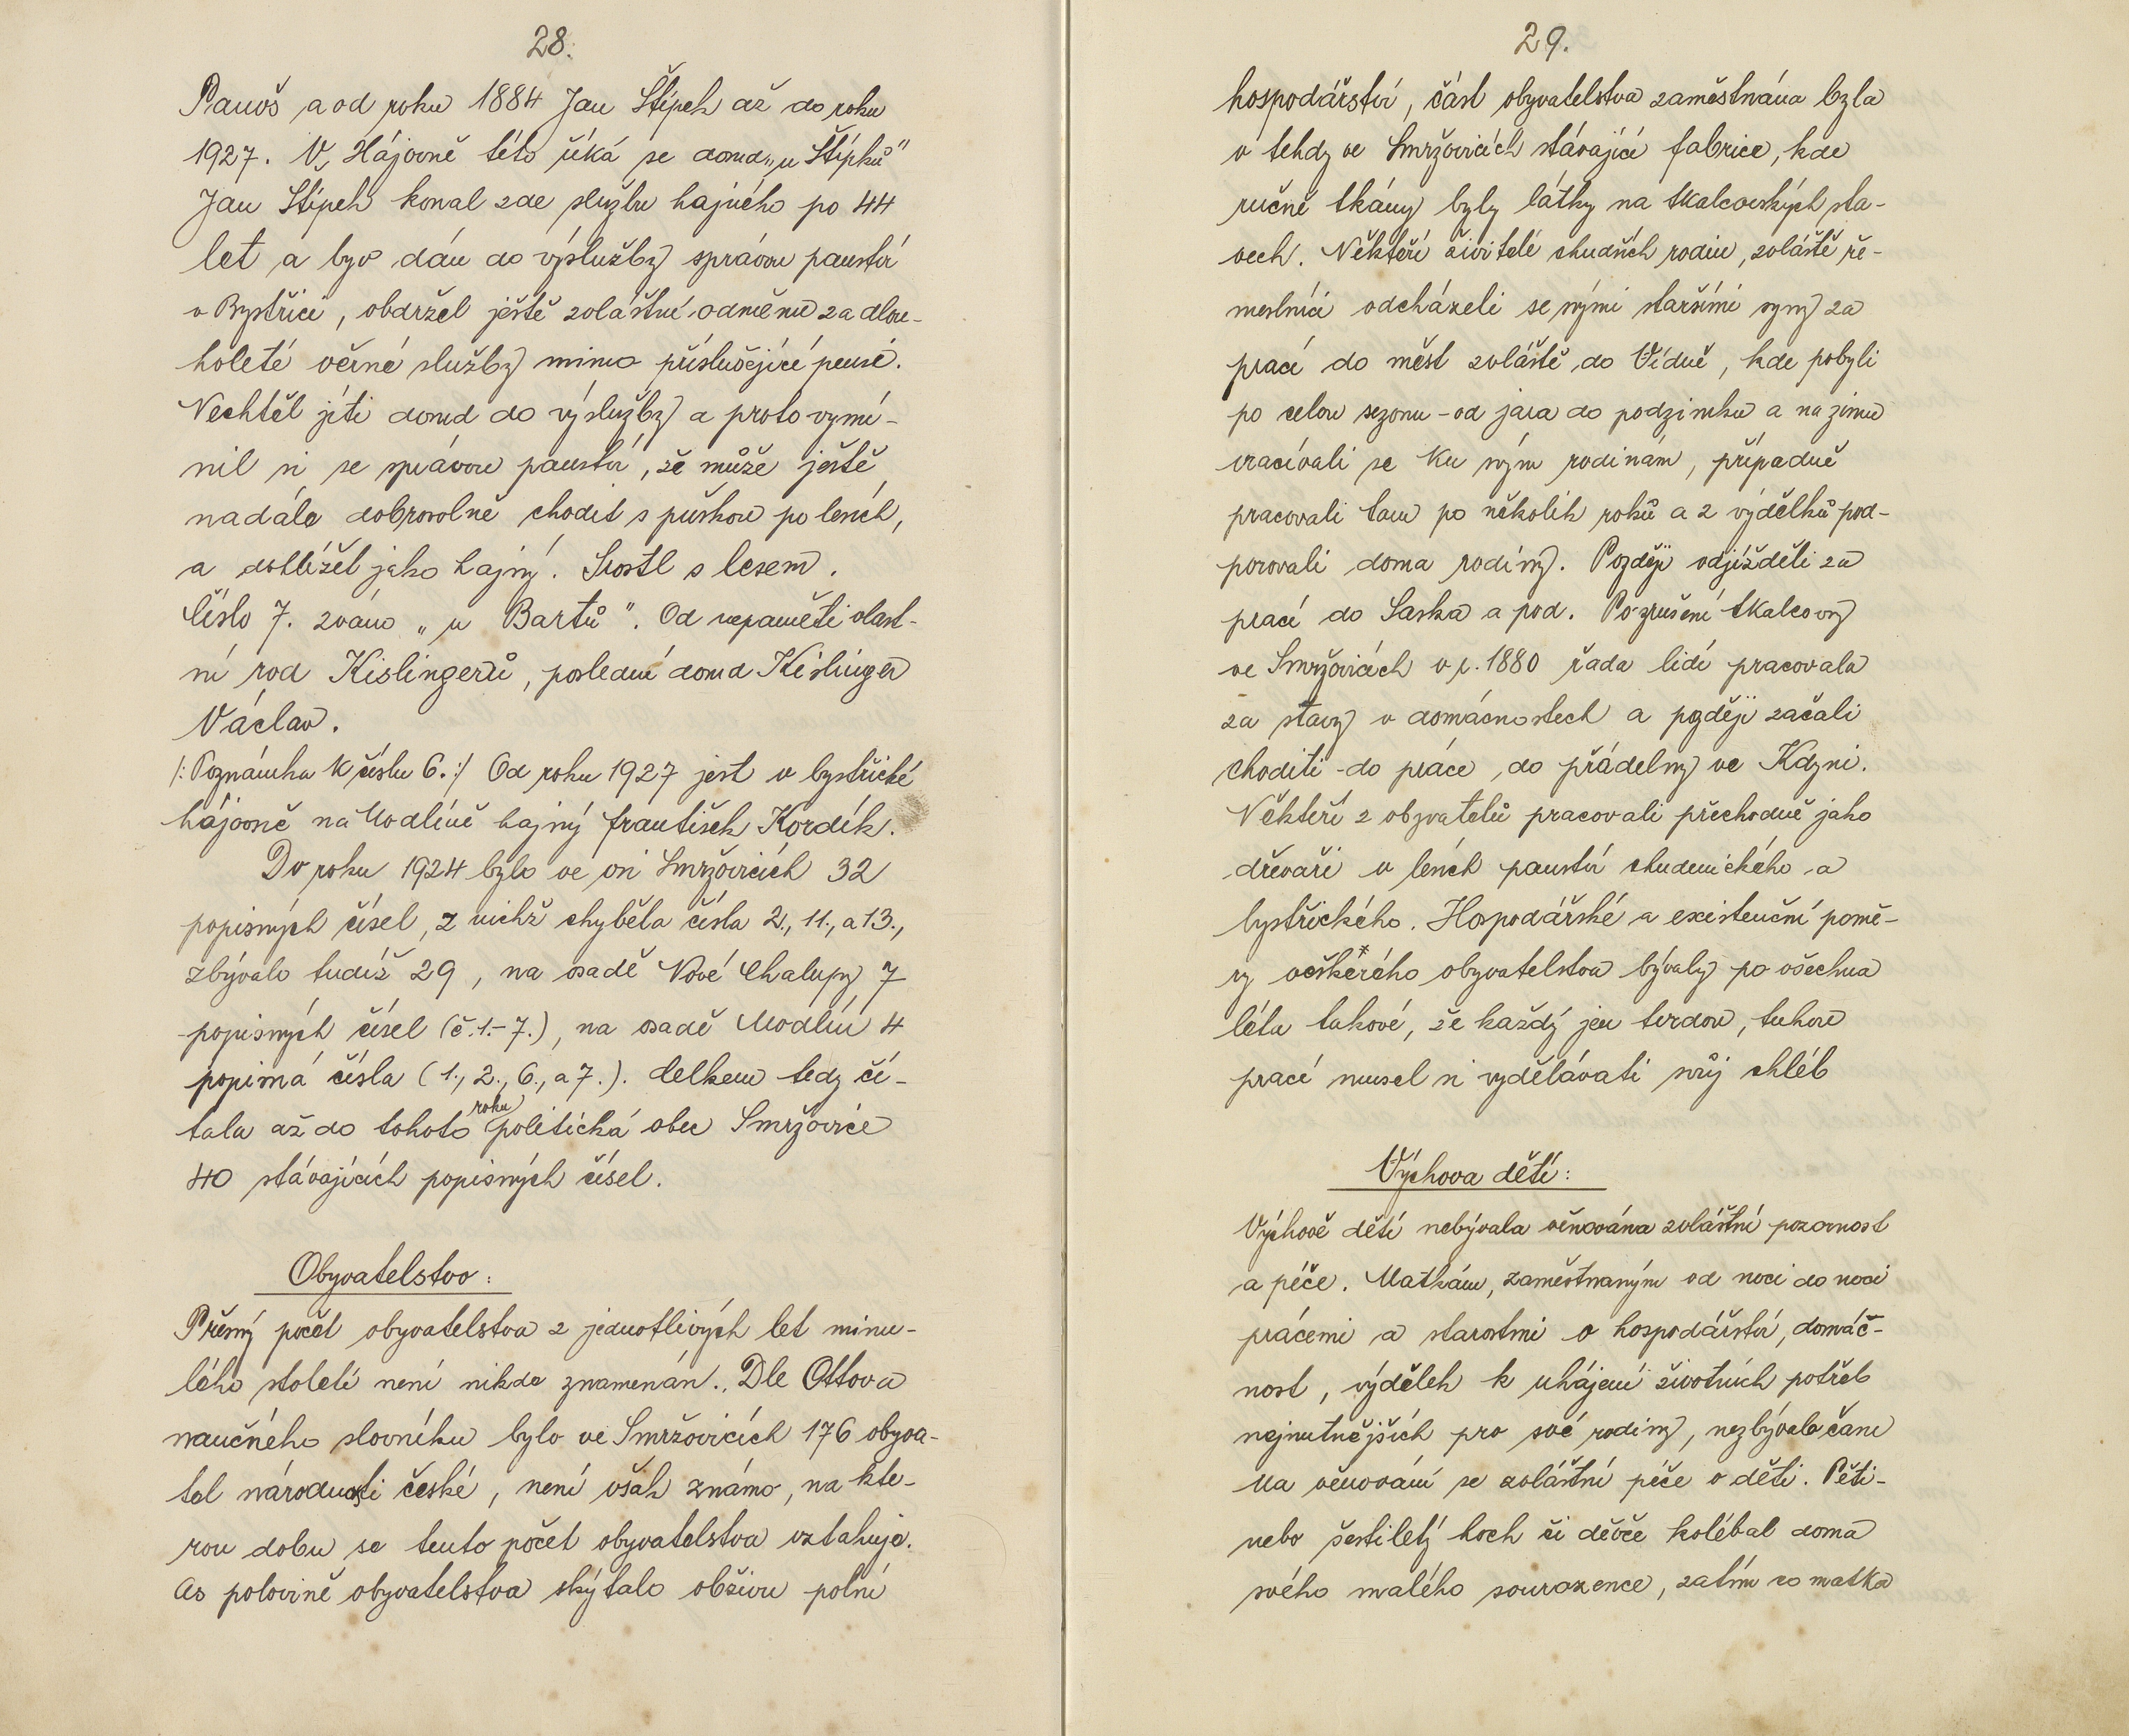 28.
Panoš a od roku 1884 Jan Štípek až do roku
1927. V Hájovně této říká se doma „u Štípků"
Jan Štípek konal zde službu hajného po 44
let a byv dán do výslužby správou panství
v Bystřici, obdržel ještě zvláštní odměnu za dlou-
holeté věrné služby mimo příslušející pensi.
Nechtěl jíti domů do výslužby a proto vymí-
nil si se správou panství, že může ještě
nadále dobrovolně chodit s puškou po lesích,
a dohlížel jako hajný. Srostl s lesem.
Číslo 7. zváno „u Bartů". Od nepaměti vlast-
ní rod Kislingerů, poslední doma Kislinger
Václav.
/: Poznámka k číslu 6.:/ Od roku 1927 jest v bystřické
hájovně na Modlíně hajný František Kordík.
Do roku 1924 bylo ve vsi Smržovicích 32
popisných čísel, z nichž chyběla čísla 2., 11., a 13.,
zbývalo tudíž 29, na osadě Nové Chalupy 7
popisných čísel (č.1.-7.), na osadě Modlín 4
popisná čísla (1., 2., 6., a 7.). Celkem tedy čí-
tala až do tohoto roku politická obec Smržovice
40 stávajících popisných čísel.
Obyvatelstvo:
Přesný počet obyvatelstva z jednotlivých let minu-
lého století není nikde znamenán. Dle Ottova
naučného slovníku bylo ve Smržovicích 176 obyva-
tel národnosti české, není však známo, na kte-
rou dobu se tento počet obyvatelstva vztahuje.
As polovině obyvatelstva skýtalo obživu polní
29.
hospodářství, část obyvatelstva zaměstnána byla
v tehdy ve Smržovicích stávající fabrice, kde
ručně tkány byly látky na tkalcovských sta-
vech. Někteří živitelé chudších rodin, zvláště ře-
meslníci odcházeli se svými staršími syny za
prací do měst zvláště do Vídně, kde pobyli
po celou sezonu - od jara do podzimku a na zimu
vraceli se ku svým rodinám, případně
pracovali tam po několik roků a z výdělků pod-
porovali doma rodiny. Později odjížděli za
prací do Saska a pod. Po zrušení tkalcovny
ve Smržovicích v r. 1880 řada lidí pracovala
za stavy v domácnostech a později začali
choditi do práce, do přádelny ve Kdyni.
Někteří z obyvatelů pracovali přechodně jako
dřevaři v lesích panství chudenického a
bystřického. Hospodářské a existenční pomě-
ry veškerého obyvatelstva bývaly po všechna
léta takové, že každý jen tvrdou, tuhou
prací musel si vydělávati svůj chléb
Výchova dětí:
Výchově dětí nebývala věnována zvláštní pozornost
a péče. Matkám, zaměstnaným od noci do noci
prácemi a starostmi o hospodářství, domác-
nost, výdělek k uhájení životních potřeb
nejnutnějších pro své rodiny, nezbývalo času
na věnování se zvláštní péče o děti. Pěti-
nebo šestiletý hoch či děvče kolébal doma
svého malého sourozence, zatím co matka